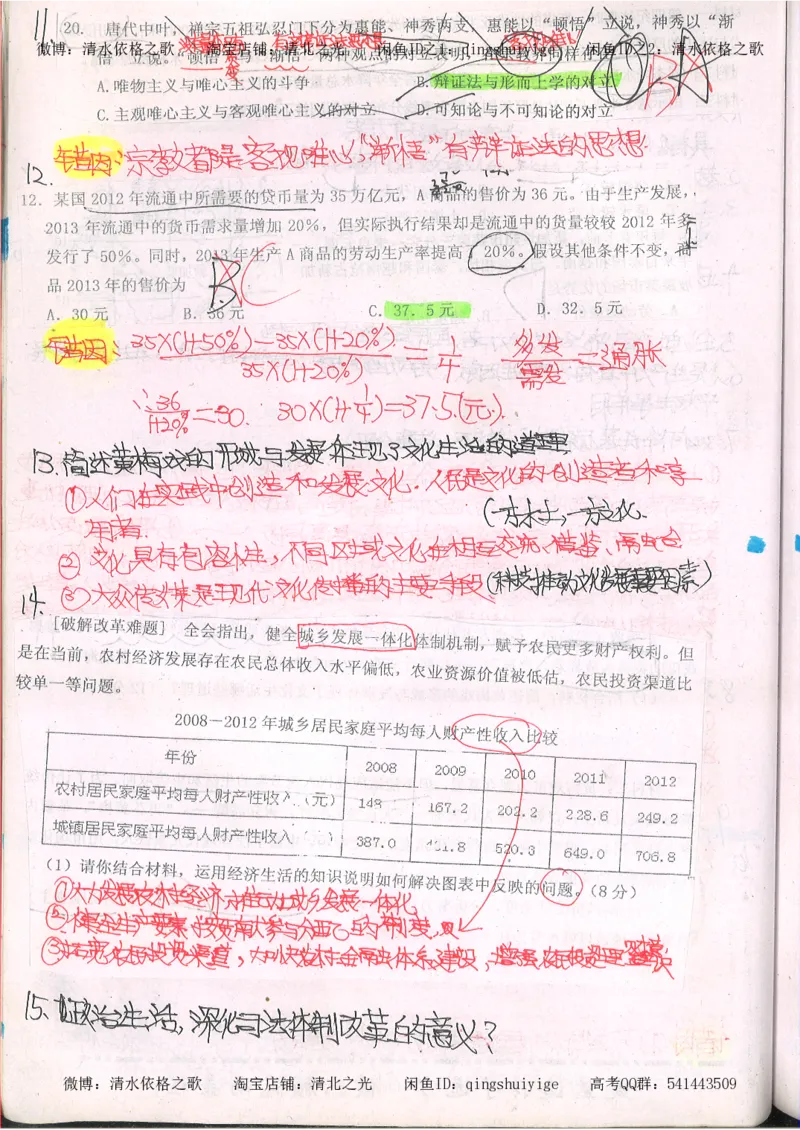 11.
20. 唐代中叶，禅宗五祖弘忍门下分为惠能、神秀两支，惠能以“顿悟”立说，神秀以“渐
微博：清水依格之歌 淘宝店铺：清北之光 闲鱼ID之1：qingshuiyige 闲鱼ID之2：清水依格之歌
悟”立说。“顿悟”与“渐悟”两种观点的对立表明，在宗教界同样存在
A.唯物主义与唯心主义的斗争 B.辩证法与形而上学的对立
C.主观唯心主义与客观唯心主义的对立 D.可知论与不可知论的对立
B A
错因：宗教都是客观唯心，“渐悟”有辩证法的思想
12.
12．某国 2012 年流通中所需要的货币量为 35 万亿元，A 商品的售价为 36 元。由于生产发展，
2013 年流通中的货币需求量增加 20%，但实际执行结果却是流通中的货量较较 2012 年多
发行了 50%。同时，2013 年生产 A 商品的劳动生产率提高了 20%。假设其他条件不变，商
品 2013 年的售价为
B C
A．30 元 B．36 元 C．37．5 元 D．32．5 元
错因：35×(1+50%)-35×(1+20%) / 35×(1+20%) = 1/4 多发/需发=通胀
∵ 36/1+20% =30. 30×(1+1/4)=37.5(元).
13.简述黄梅戏的形成与发展体现了文化生活的道理
①人们在实践中创造和发展文化.人民是文化的创造者和享
用者. (一方水土,一方文化.
②文化具有包容性,不同区域文化在相互交流、借鉴、融合
③大众传媒是现代文化传播的主要手段(科技推动文化发展重要因素)
14.
[破解改革难题] 全会指出，健全城乡发展一体化体制机制，赋予农民更多财产权利。但
是在当前，农村经济发展存在农民总体收入水平偏低，农业资源价值被低估，农民投资渠道比
较单一等问题。
2008－2012 年城乡居民家庭平均每人财产性收入比较
年份 2008 2009 2010 2011 2012
农村居民家庭平均每人财产性收入（元） 148 167.2 202.2 228.6 249.2
城镇居民家庭平均每人财产性收入（ ） 387.0 431.8 520.3 649.0 706.8
(1) 请你结合材料，运用经济生活的知识说明如何解决图表中反映的问题。（8 分）
①大力发展农村经济,推动城乡发展一体化
②健全生产要素按贡献参与分配的制度
③拓宽农民投资渠道,加快农村金融体系建设,增强农民投资理财意识
15.政治生活,深化司法体制改革的意义?
微博：清水依格之歌 淘宝店铺：清北之光 闲鱼ID：qingshuiyige 高考QQ群：541443509